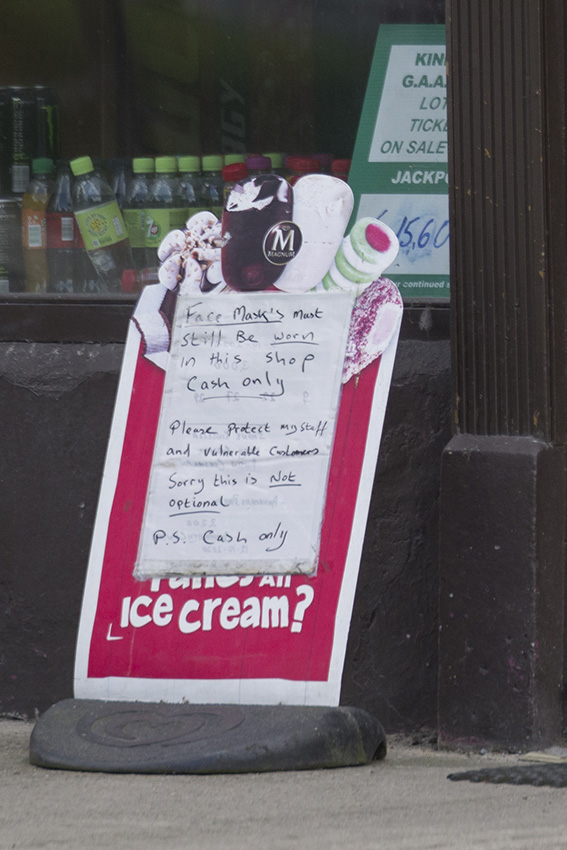 G.A.A
ON SALE
JACKP
continued
M
MAGNUM
Face Mask's Must
still Be worn
in this shop
Cash only
Please Protect my staff
and vulnerable Customers
Sorry this is Not
optional
P.S. Cash only
ice cream?